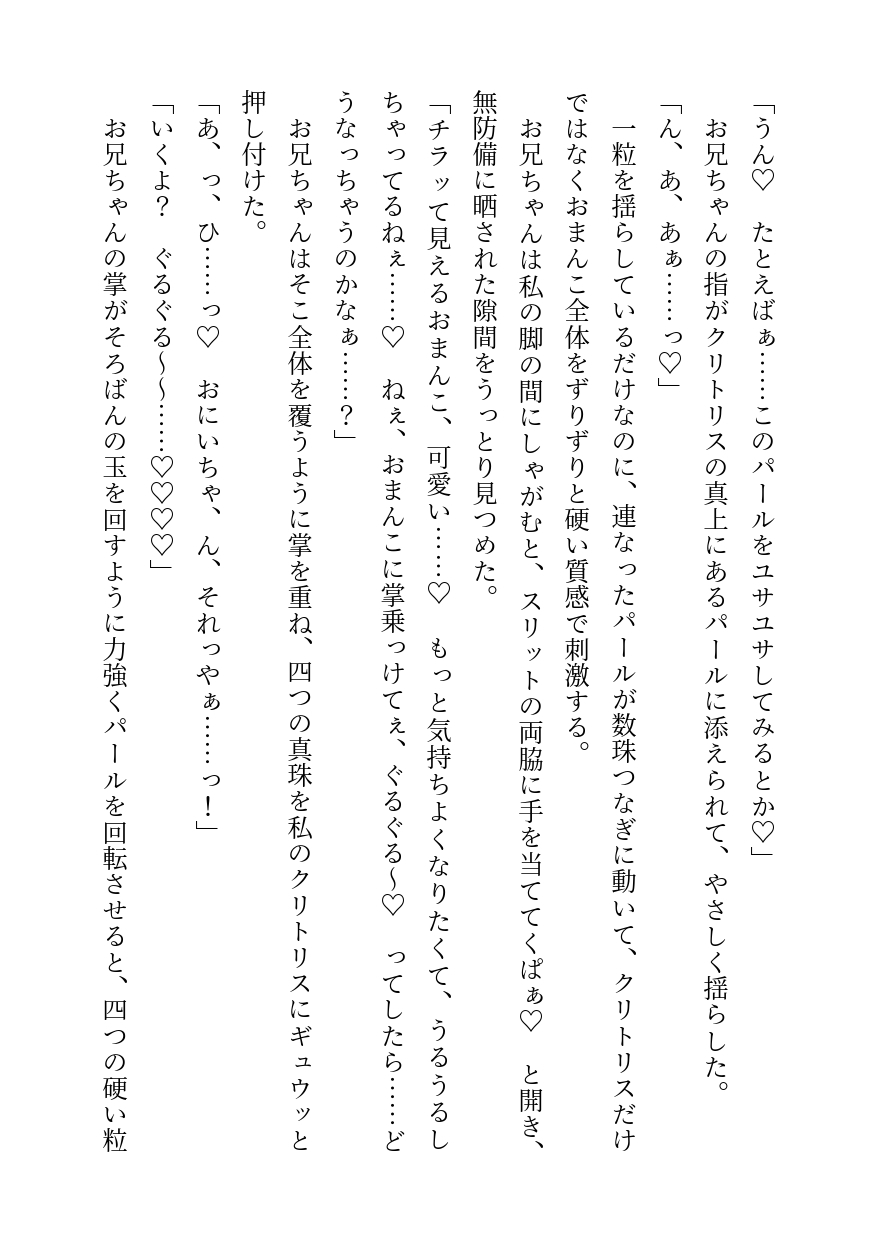 「うん♡　たとえばぁ……このパールをユサユサしてみるとか♡」
　お兄ちゃんの指がクリトリスの真上にあるパールに添えられて、やさしく揺らした。
「ん、あ、あぁ……っ♡」
　一粒を揺らしているだけなのに、連なったパールが数珠つなぎに動いて、クリトリスだけ
ではなくおまんこ全体をずりずりと硬い質感で刺激する。
　お兄ちゃんは私の脚の間にしゃがむと、スリットの両脇に手を当ててくぱぁ♡　と開き、
無防備に晒された隙間をうっとり見つめた。
「チラッて見えるおまんこ、可愛い……♡　もっと気持ちよくなりたくて、うるうるし
ちゃってるねぇ……♡　ねぇ、おまんこに掌乗っけてぇ、ぐるぐる～♡　ってしたら……ど
うなっちゃうのかなぁ……？」
　お兄ちゃんはそこ全体を覆うように掌を重ね、四つの真珠を私のクリトリスにギュウッと
押し付けた。
「あ、っ、ひ……っ♡　おにいちゃ、ん、それっやぁ……っ！」
「いくよ？　ぐるぐる～～……♡♡♡♡」
　お兄ちゃんの掌がそろばんの玉を回すように力強くパールを回転させると、四つの硬い粒